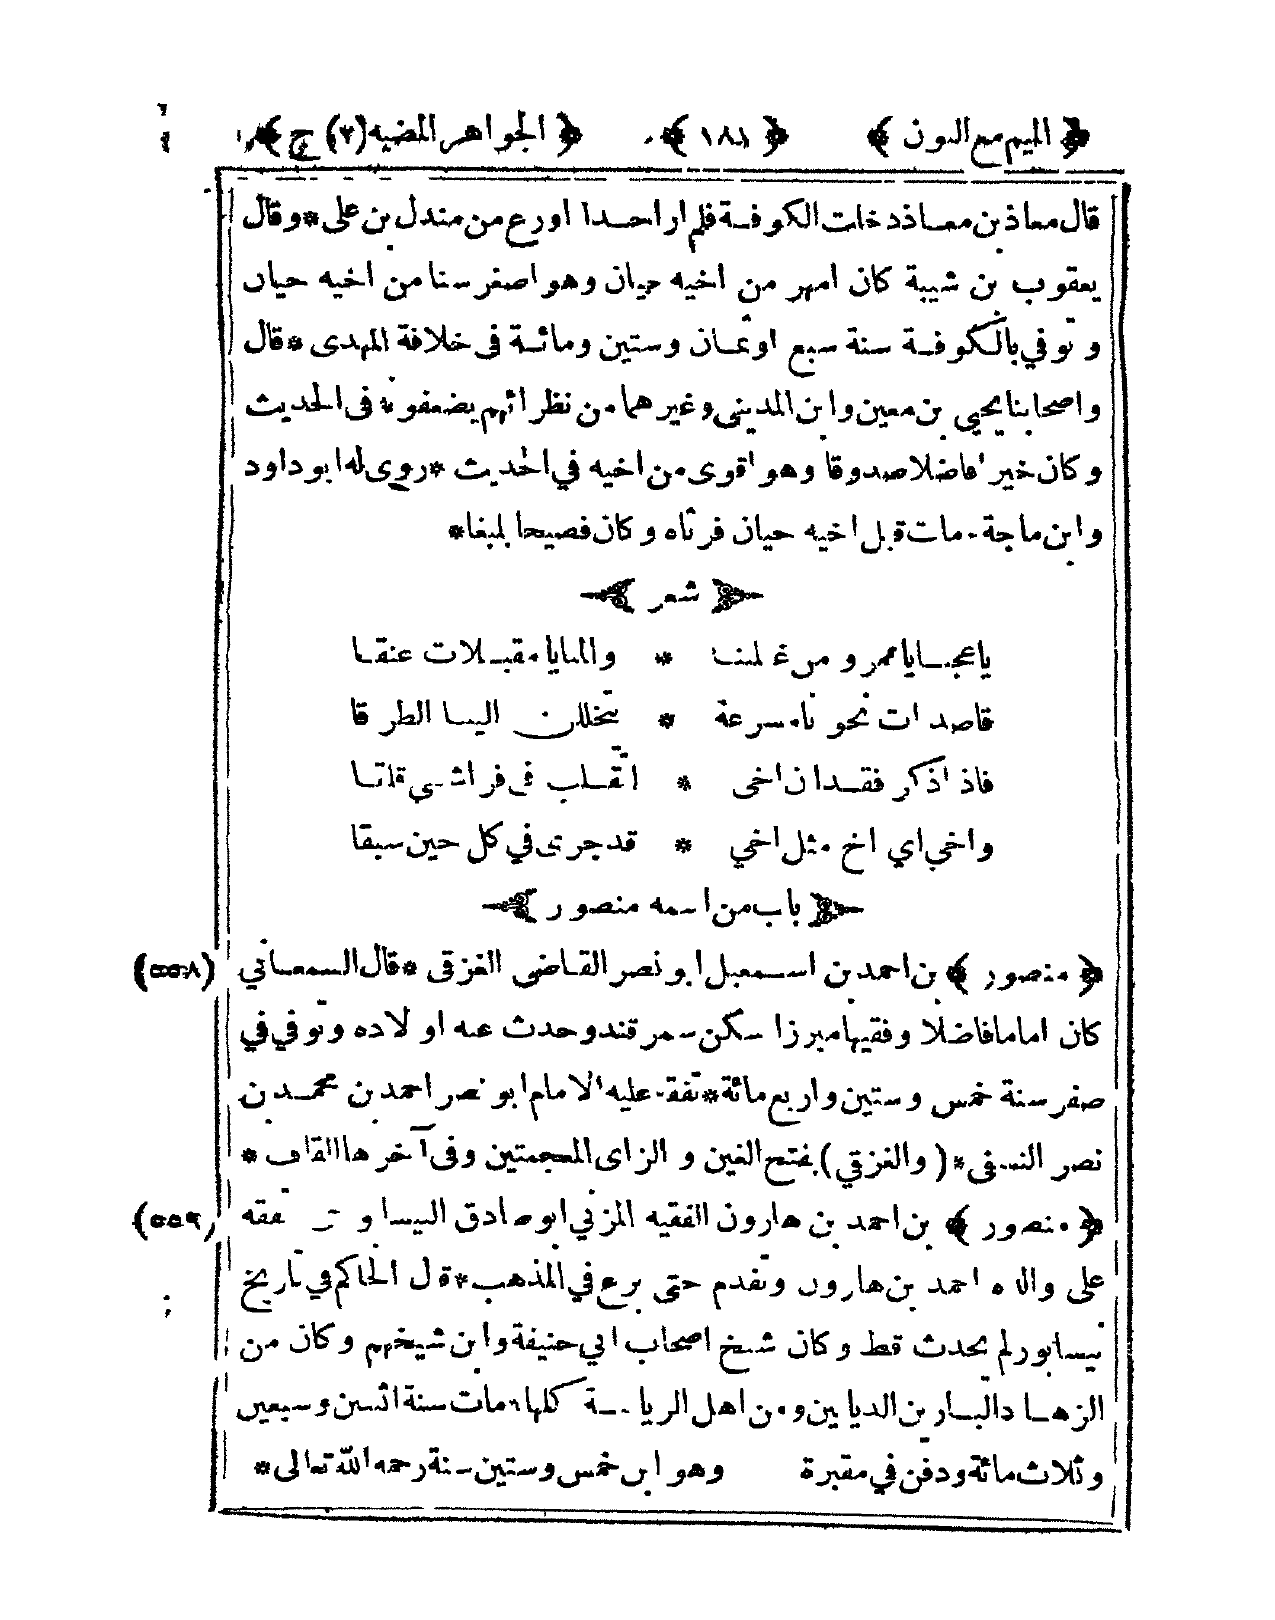 ﴿ الميم مع النون ﴾ ﴿ ١٨١ ﴾ ﴿ الجواهر المضيه (٢) ج ﴾
قال معاذ بن معاذ دخلت الكوفة فلم ار احدا اورع من مندل بن على * وقال
يعقوب بن شيبة كان امهر من اخيه حيان وهو اصغر سنا من اخيه حيان
و توفي بالكوفة سنة سبع او ثمان وستين ومائة فى خلافة المهدى * قال
واصحابنا يحيى بن معين وابن المدينى وغيرهما من نظرائهم يضعفونه فى الحديث
وكان خيرا فاضلا صدوقا وهو اقوى من اخيه في الحديث * روى له ابو داود
وابن ماجة . مات قبل اخيه حيان فرثاه وكان فصيحا بليغا *
﴿ شعر ﴾
يا عجبا يا عمرو من غفلتنا * والمنايا مقبلات عنقا
قاصدات نحونا مسرعة * يتخللن الينا الطرقا
فاذا ذكر فقدان اخى * اتقلب فى فراشى قلقا
واخي اي اخ مثل اخي * قد جرى في كل حين سبقا
﴿ باب من اسمه منصور ﴾
﴿ منصور ﴾ بن احمد بن اسمعيل ابو نصر القاضى الغزقى * قال السمعاني (٥٥٨)
كان اماما فاضلا وفقيها مبرزا سكن سمرقند وحدث عنه اولاده وتوفي في
صفر سنة خمس وستين واربع مائة * تفقه عليه الامام ابو نصر احمد بن محمد بن
نصر النسفى * ( والغزقي ) بفتح الغين و الزاى المعجمتين وفى آخرها القاف *
﴿ منصور ﴾ بن احمد بن هارون الفقيه المزني ابو صادق النيسا و تفقه (٥٥٩)
على والده احمد بن هارون وتقدم حتى برع في المذهب * قال الحاكم في تاريخ
نيسابور لم يحدث قط وكان شيخ اصحاب ابي حنيفة وابن شيخهم وكان من
الزهاد البارين الديانين ومن اهل الرياسة كلها * مات سنة اثنين وسبعين
وثلاث مائة ودفن في مقبرة وهو ابن خمس وستين سنة رحمه الله تعالى *